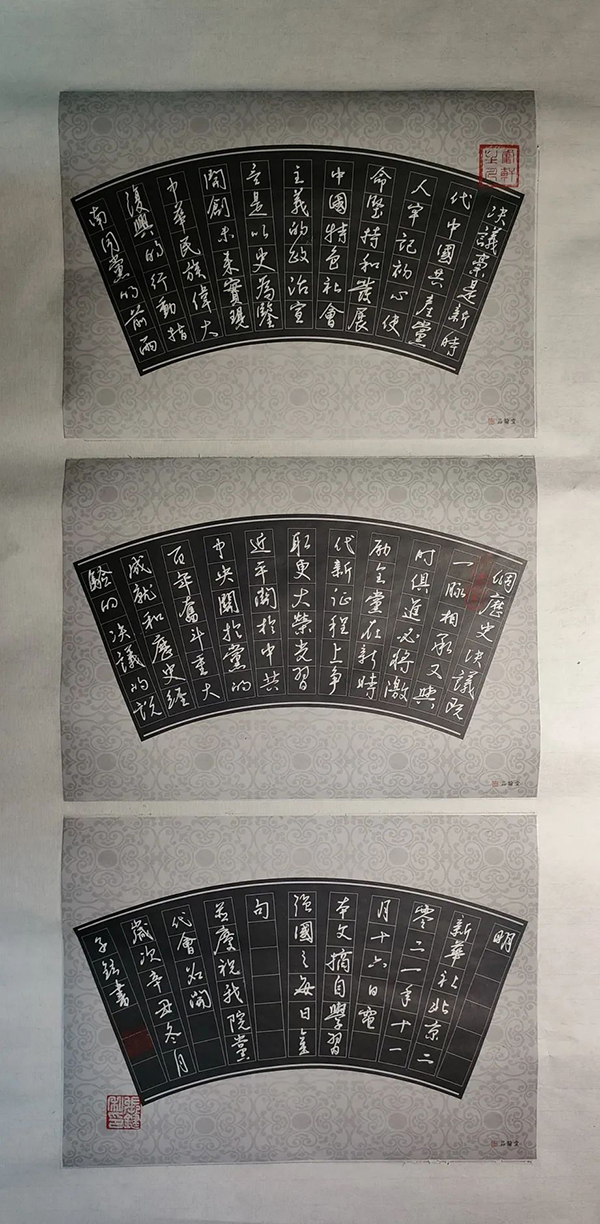 决議稾是新時
代中國共產黨
人牢記初心使
命堅持和發展
中國特色社會
主義的政治宣
言是以史為鑒
開創未來實現
中華民族偉大
復興的行動指
南同黨的前兩
個歷史决議既
一脉相承又與
时俱進必将激
励全黨在新時
代新征程上争
取更大榮光習
近平關於中共
中央關於黨的
百年奮斗重大
成就和歷史經
驗的决議的説
明
新華社北京二
零二一年十一
月十六日電
本文摘自學習
强國之每日金
句
并慶祝我院黨
代會召開
歲次辛丑冬月
書